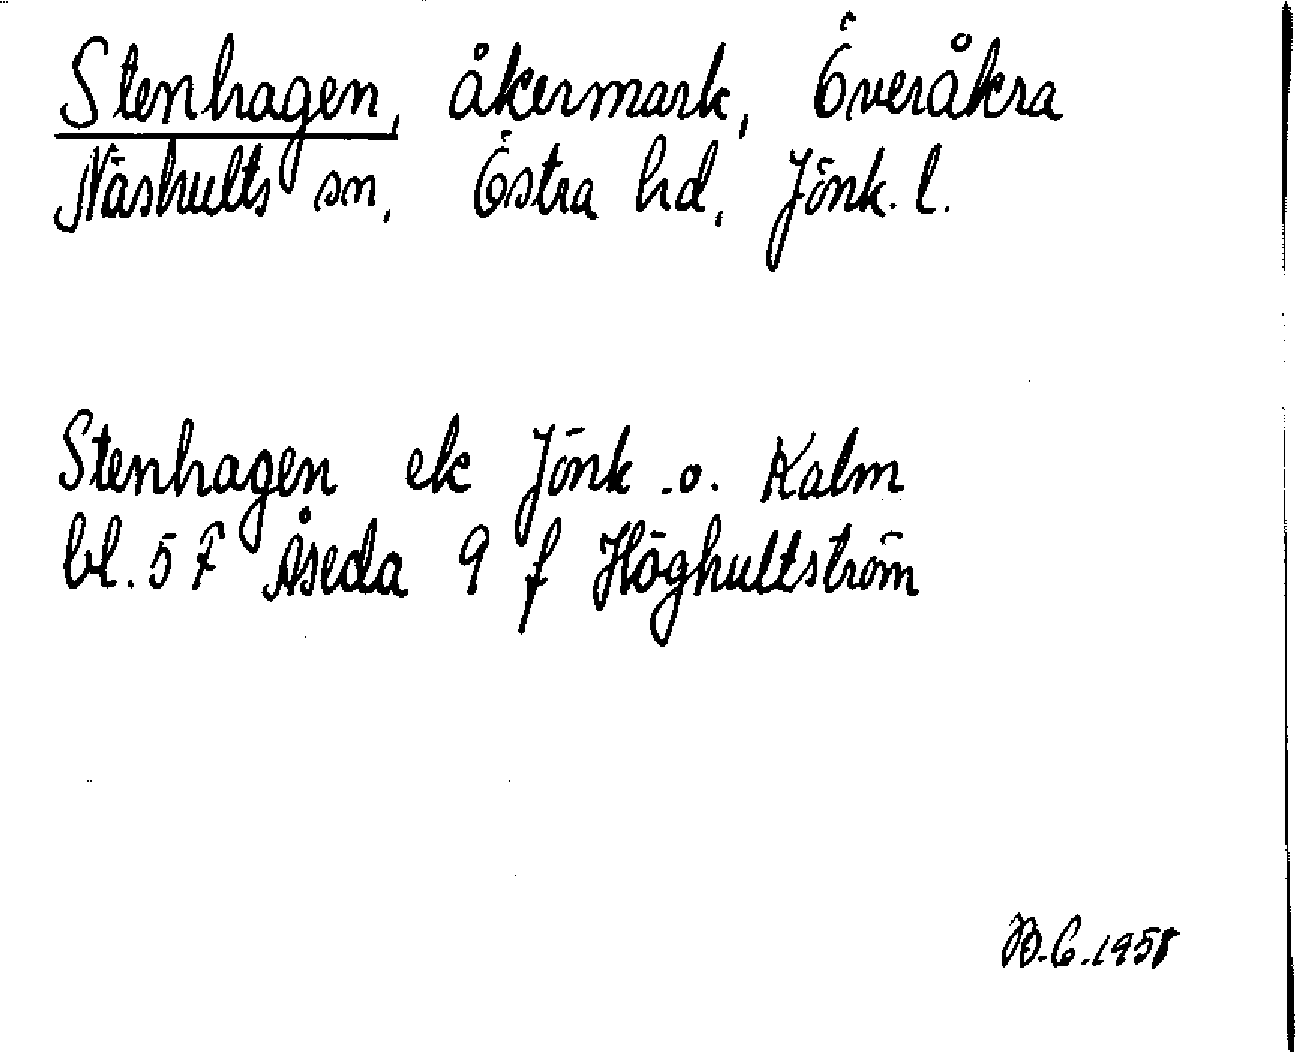 Stenhagen, åkermark, Överåkra
Näshults sn, Östra hd, Jönk. l.
Stenhagen ek Jönk .o. Kalm
bl. 5 F Åseda 9 f Höghultström
1958